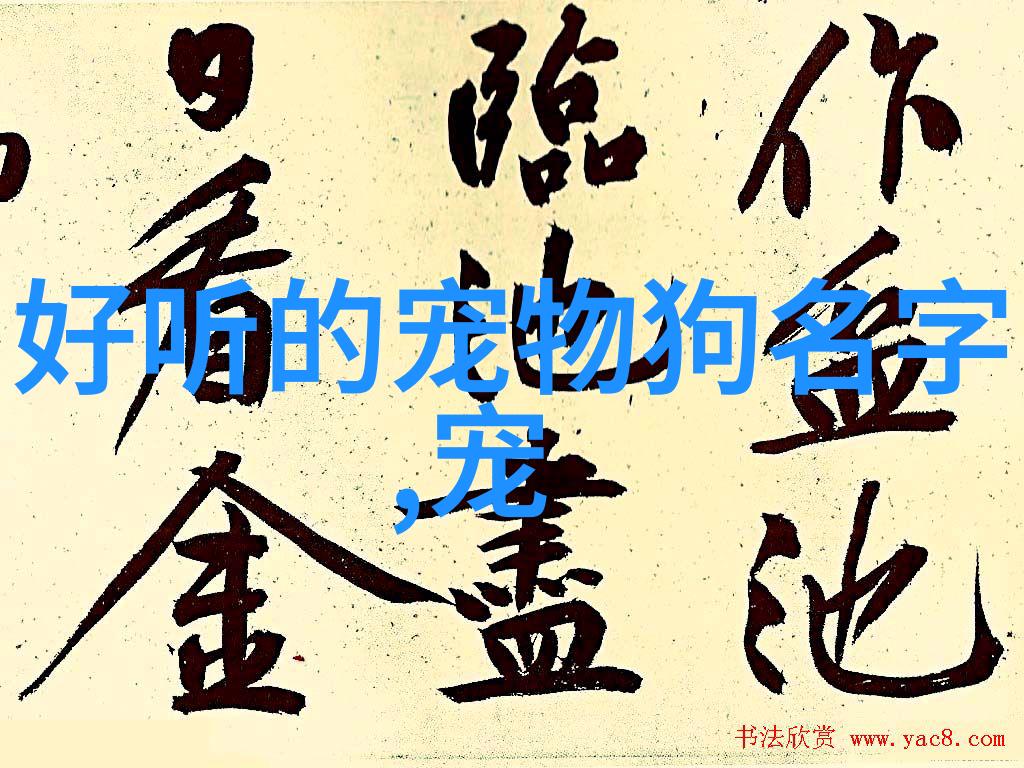 作盆池
臨池盡
日看金
好听的宠物狗名字
,宠
书法欣赏 www.yac8.com